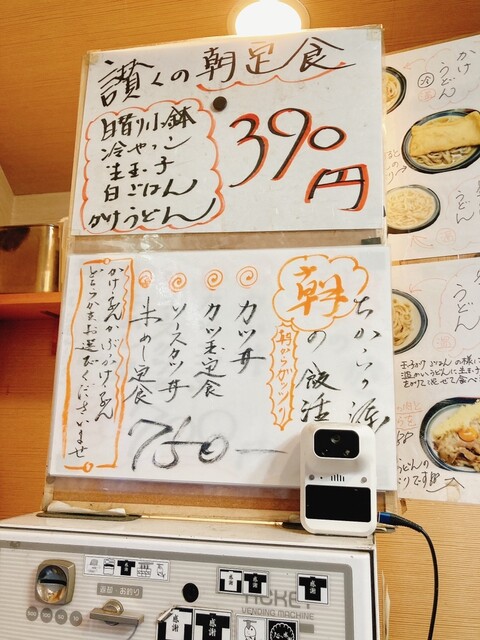 讃くの朝定食
日替り小鉢
冷やっこ
生玉子
白ごはん
かけうどん
390円
ちからの源
朝の飯活
朝からガッツリ
カツ丼
カツ玉定食
ソースカツ丼
朱めし定食
かけあんかぶっかけあん
どちらかをお選びくださいませ
750ー
かけ
うどん
冷
うどん
うどん
温かいうどんに生玉子
をかけて混ぜて食べ
うどんの
TICKET
VENDING MACHINE
感謝
感謝
感謝
感謝
感謝